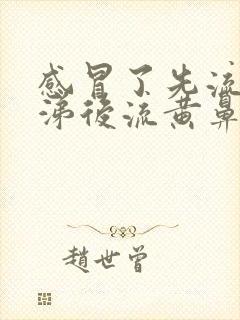 感冒了先流
涕後流黄鼻
趙世曾